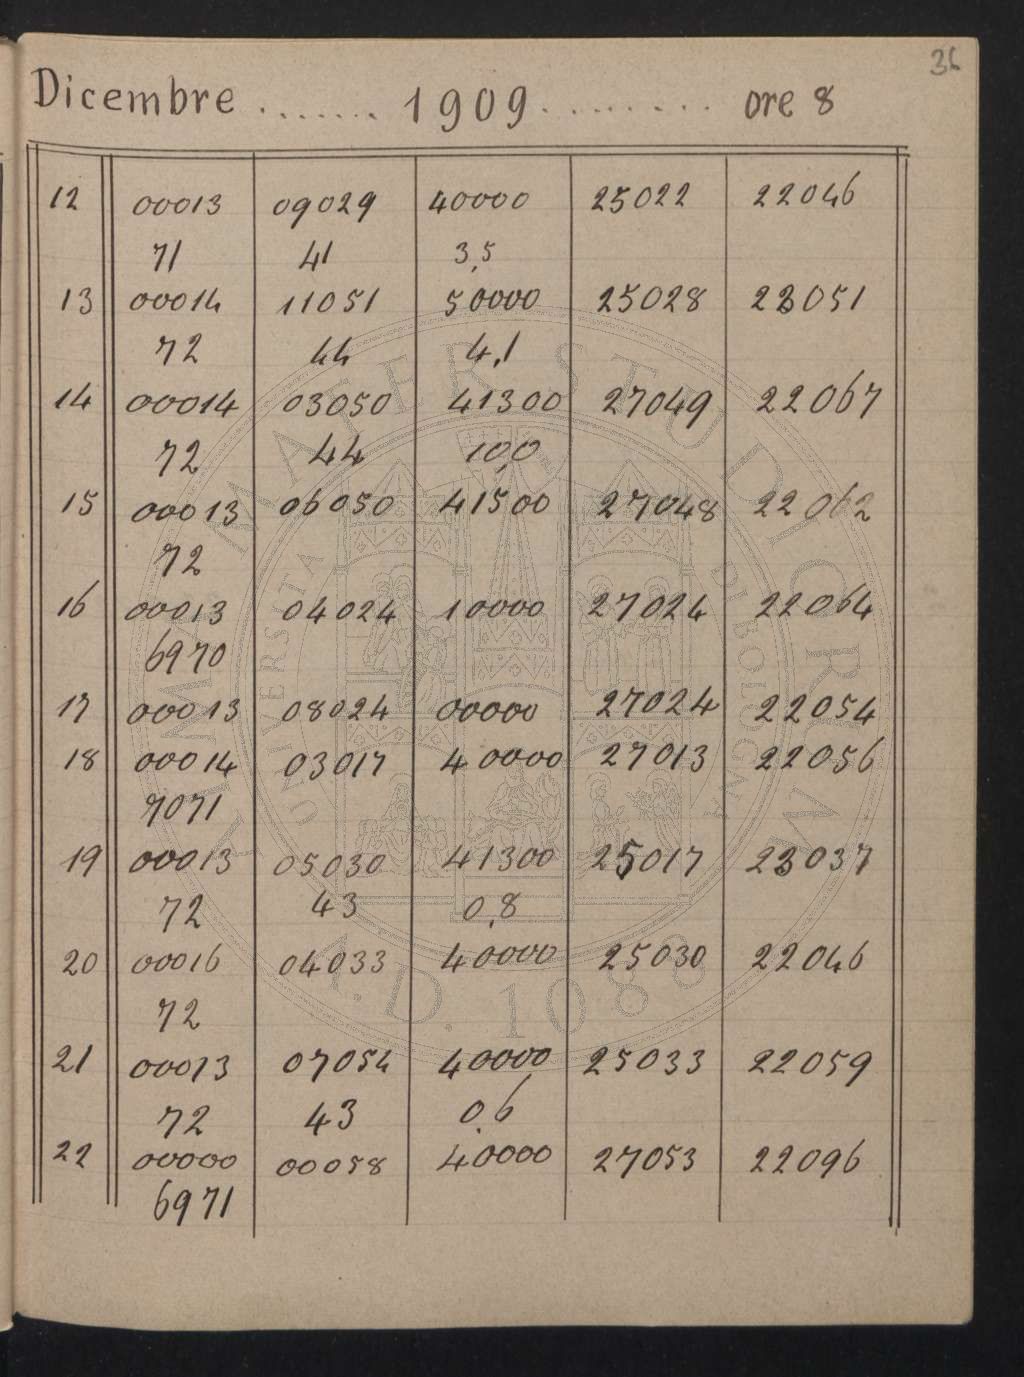 36
Dicembre ....... 1909 ......... ore 8
12 00013 09029 40000 25022 22046
71 41 3,5
13 00014 11051 50000 25028 22051
72 44 4,1
14 00014 03050 41300 27049 22067
72 44 10,0
15 00013 06050 41500 27048 22062
72
16 00013 04024 10000 27024 22064
6970
17 00013 08024 00000 27024 22054
18 00014 03017 40000 27013 22056
7071
19 00013 05030 41300 25017 23037
72 43 0,8
20 00016 04033 40000 25030 22046
72
21 00013 07054 40000 25033 22059
72 43 0,6
22 00000 00058 40000 27053 22096
6971
ALMA MATER STUDIORUM
UNIVERSITA DI BOLOGNA
A.D. 1088